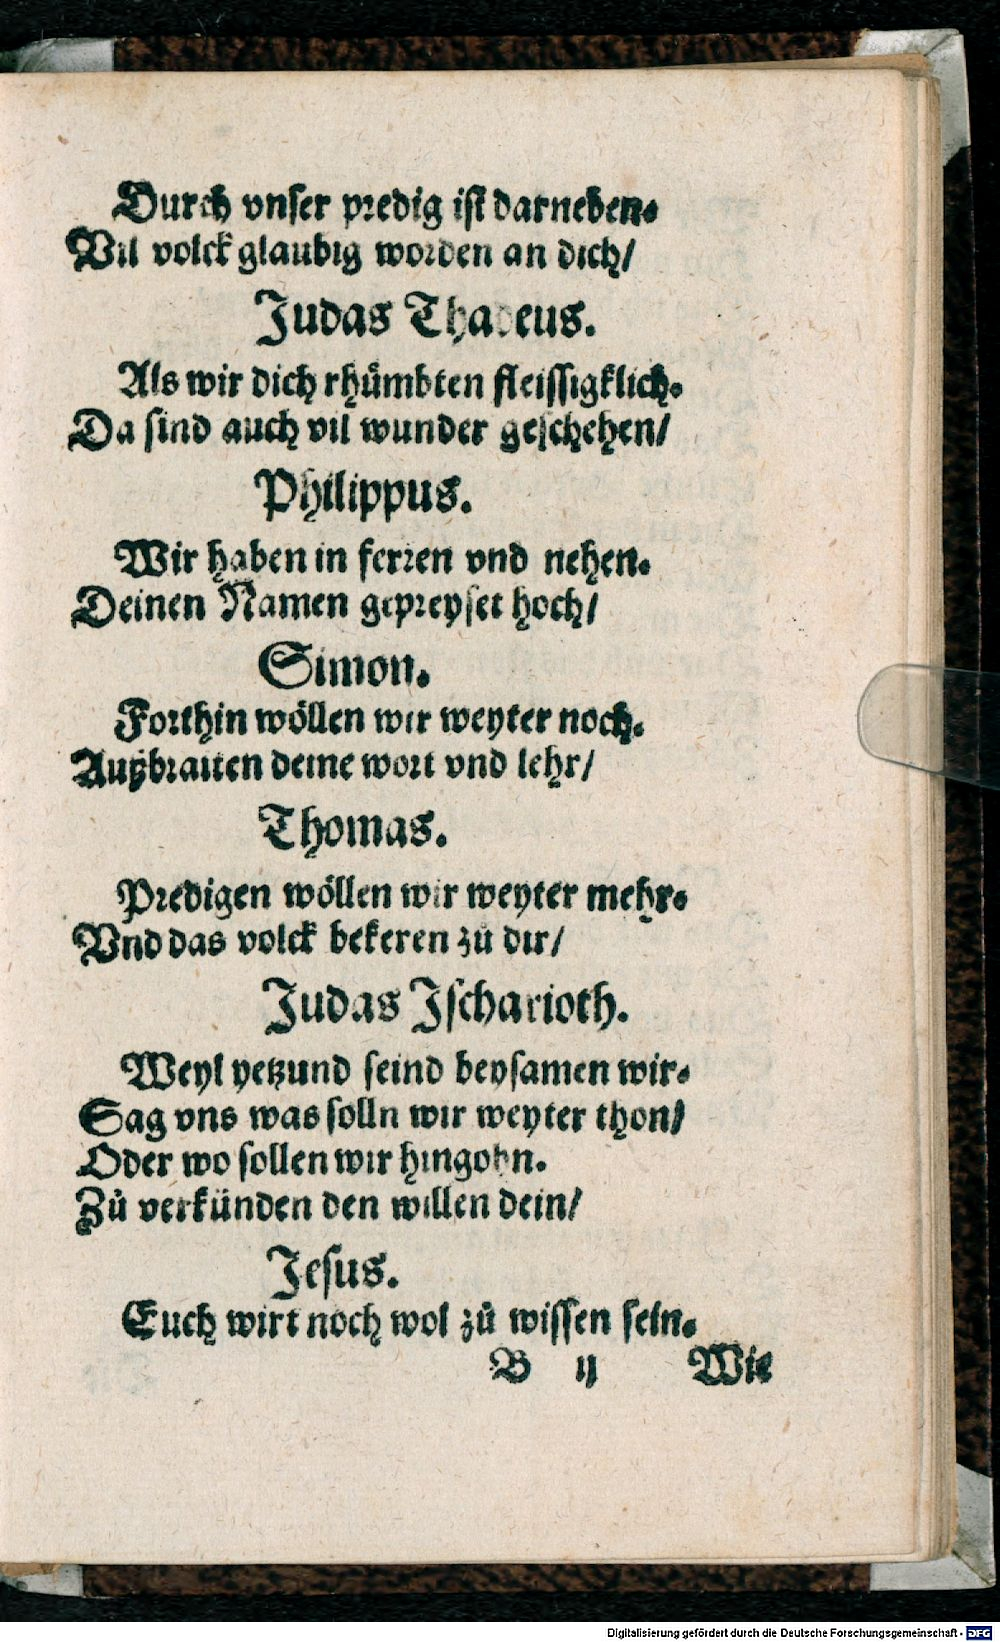 Durch vnser predig ist darneben.
Vil volck glaubig worden an dich/
Judas Thadeus.
Als wir dich rhuͤmbten fleissigklich.
Da sind auch vil wunder geschehen/
Philippus.
Wir haben in ferren vnd nehen.
Deinen Namen gepreyset hoch/
Simon.
Forthin woͤllen wir weyter noch.
Außbraiten deine wort vnd lehr/
Thomas.
Predigen woͤllen wir weyter mehr.
Vnd das volck bekeren zů dir/
Judas Jscharioth.
Weyl yetzund seind beysamen wir.
Sag vns was solln wir weyter thon/
Oder wo sollen wir hingohn.
Zů verkünden den willen dein/
Jesus.
Euch wirt noch wol zů wissen sein.
B ij Wie
Digitalisierung gefördert durch die Deutsche Forschungsgemeinschaft - DFG